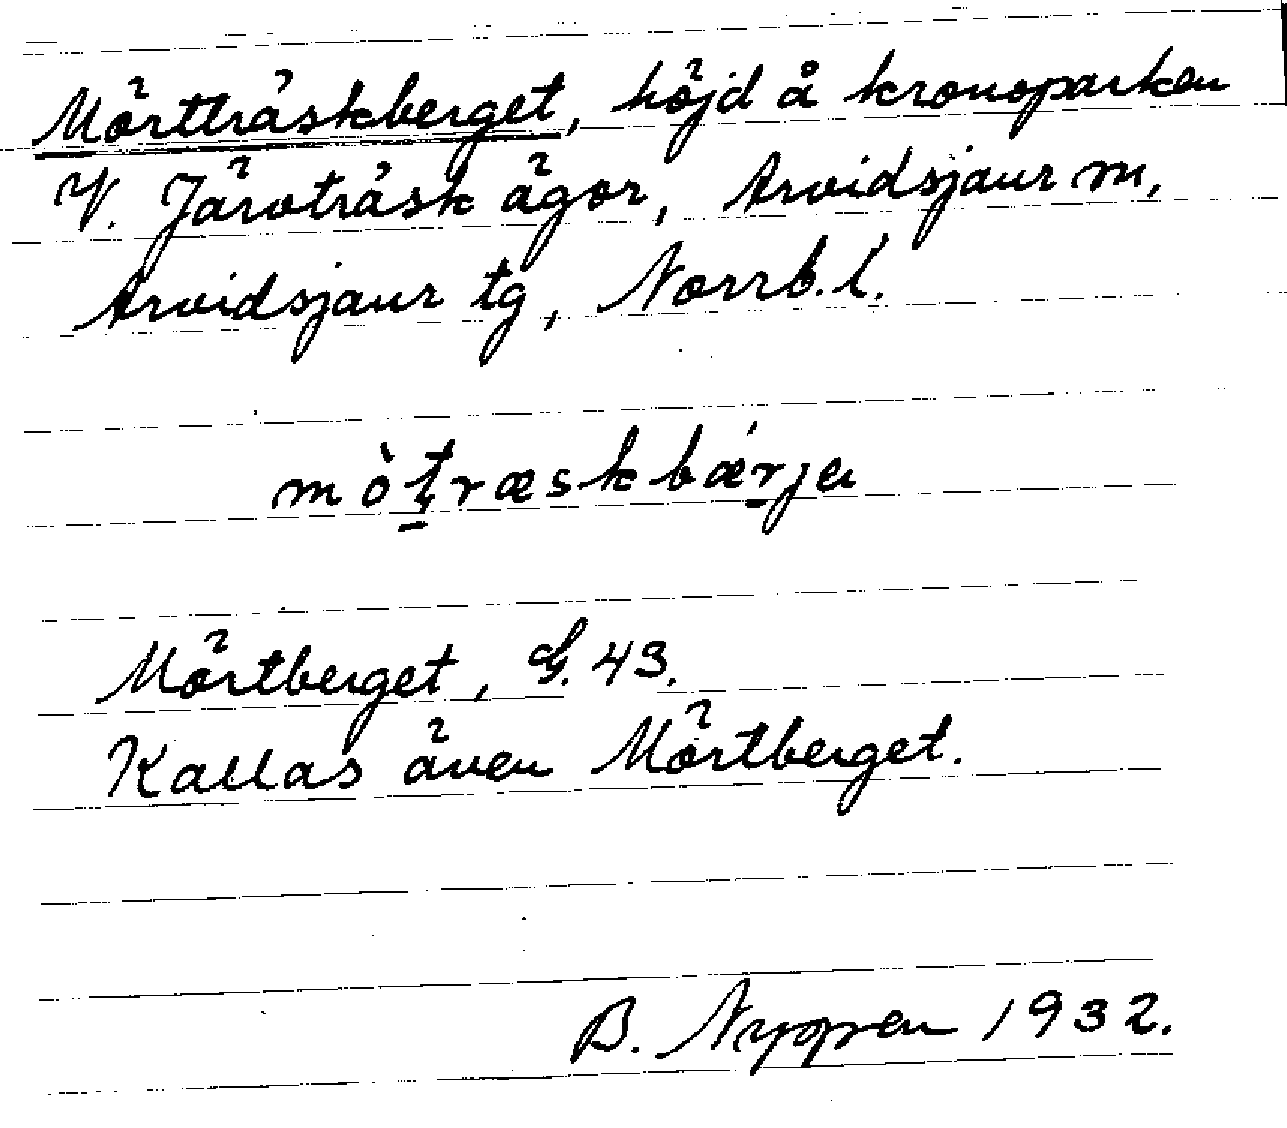 Mörtträskberget, höjd å kronoparken
V. Järvträsk ägor, Arvidsjaur sn,
Arvidsjaur tg, Norrb. l.
mòt̠ræskbǽr̠je
Mörtberget, G. 43.
Kallas även Mörtberget.
B. Nyppen 1932.